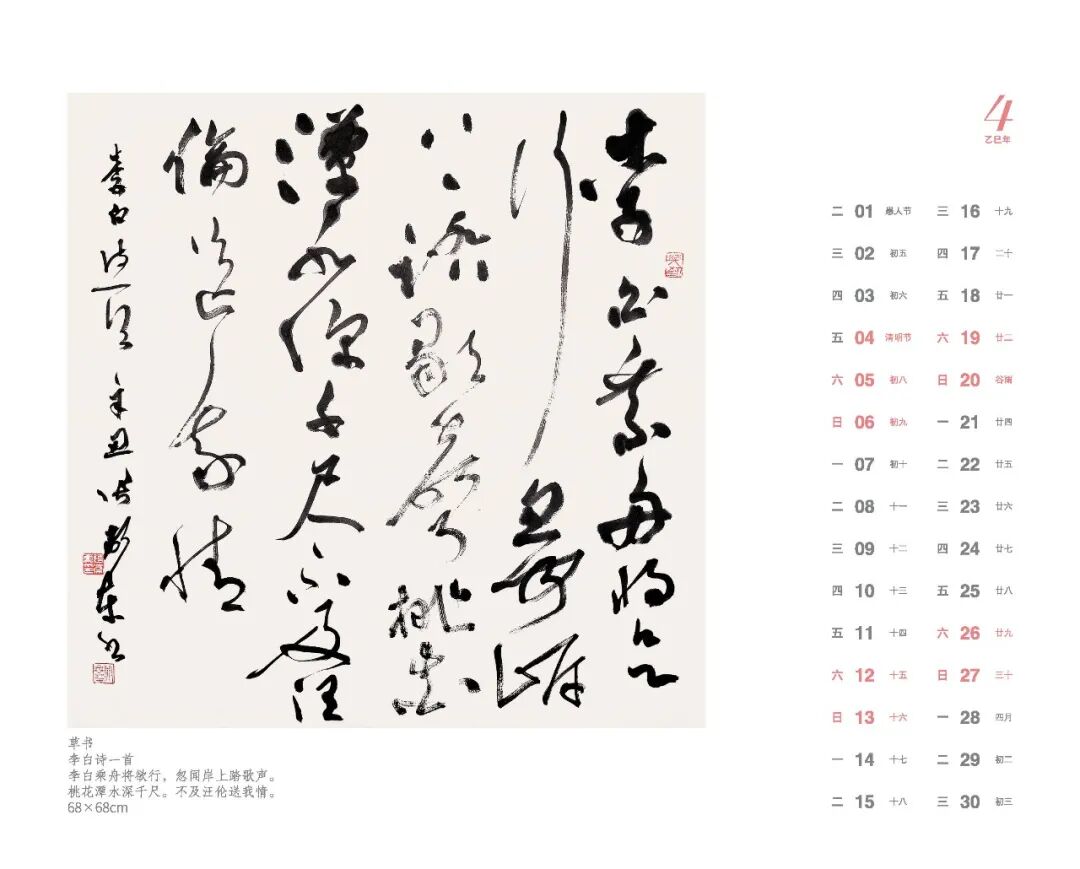 李白乘舟将欲
行忽聞岸
上踏歌聲桃花
潭水深千尺不及汪
倫送我情
李白诗一首 辛丑
草书
李白诗一首
李白乘舟将欲行，忽闻岸上踏歌声。
桃花潭水深千尺。不及汪伦送我情。
68×68cm
4
乙巳年
二 01 愚人节
三 02 初五
四 03 初六
五 04 清明节
六 05 初八
日 06 初九
一 07 初十
二 08 十一
三 09 十二
四 10 十三
五 11 十四
六 12 十五
日 13 十六
一 14 十七
二 15 十八
三 16 十九
四 17 二十
五 18 廿一
六 19 廿二
日 20 谷雨
一 21 廿四
二 22 廿五
三 23 廿六
四 24 廿七
五 25 廿八
六 26 廿九
日 27 三十
一 28 四月
二 29 初二
三 30 初三